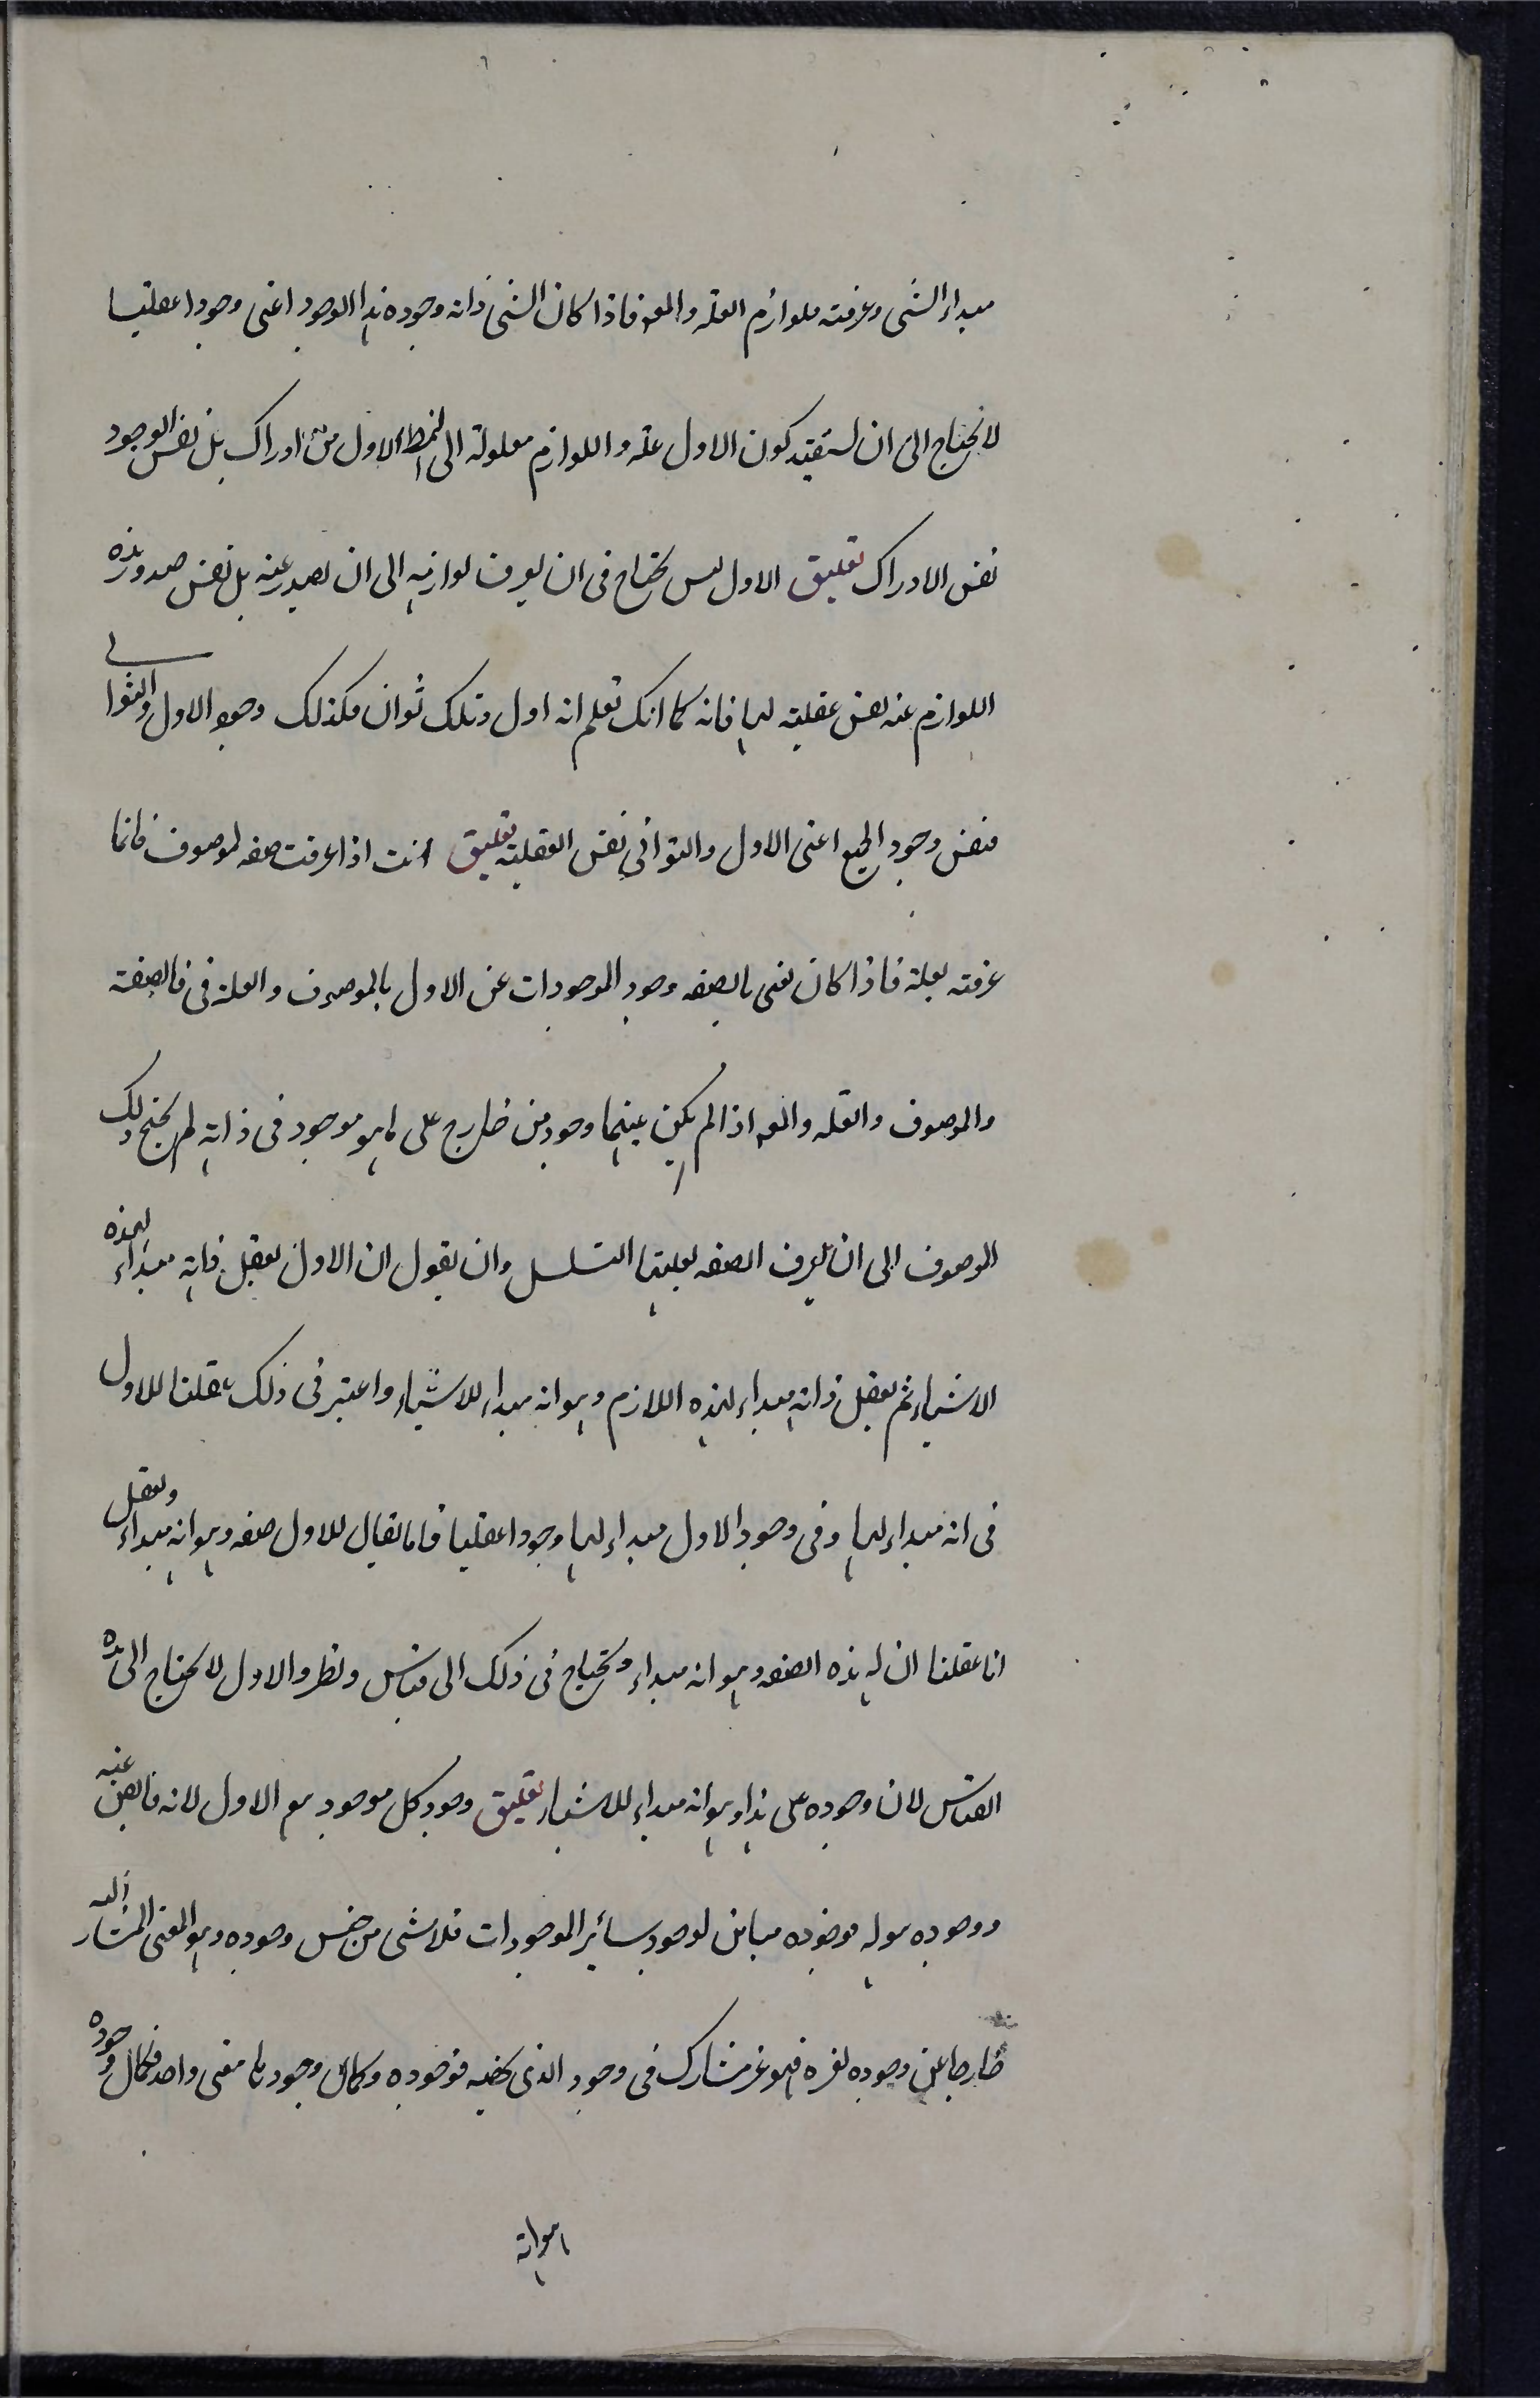 مبداء الشىء وعرفته بلوازم العلة والمع فاذا كان الشىء ذاته وجوده هذا الوجود اعنى وجودا عقليا
لا يحتاج الى ان يستفيد كون الاول علة واللوازم معلولة الى النمط الاول من ادراك بل نفس الوجود
نفس الادراك تعليق الاول ليس يحتاج فى ان يعرف لوازمه الى ان يصدر عنه بل نفس صدور هذه
اللوازم عنه نفس عقليته لها فانه كما انك تعلم انه اول وتلك ثوان فكذلك وجود الاول والثوانى
فنفس وجود الجميع اعنى الاول والثوانى نفس العقلية تعليق انت اذا عرفت صفه لموصوف فانما
عرفته بعلة فاذا كان نعنى بالصفه وجود الموجودات عن الاول بالموصوف والعلة فى فالصفة
والموصوف والعله والمع اذا لم يكن بينهما وجود من خارج على ما هو موجود فى ذاته لم يحتج ذلك
الموصوف الى ان يعرف الصفه بعليتها التسلسل وان يقول ان الاول يعقل ذاته مبداء لهذه
الاشياء ثم يعقل ذاته مبداء لهذه اللازم وهو انه مبداء للاشياء واعتبر فى ذلك بعقلنا للاول
فى انه مبداء لها وفى وجود الاول مبداء لها وجودا عقليا فاما يقال للاول صفه وهو انه مبداء ويعقل
انا عقلنا ان له هذه الصفه وهو انه مبداء ويحتاج فى ذلك الى قياس ونظر والاول لا يحتاج الى هذه
القياس لان وجوده على هذا وهو انه مبداء للاشياء تعليق وجود كل موجود مع الاول لانه فايض عنه
ووجوده هو له فوجوده مباين لوجود سائر الموجودات فلا شى من جنس وجوده وهو المعنى المشار اليه
خارجا عن وجوده لغيره فهو غير مشارك فى وجود الذى يخصه فوجوده وكمال وجود ما معنى واحد فكمال وجوده
هو انه